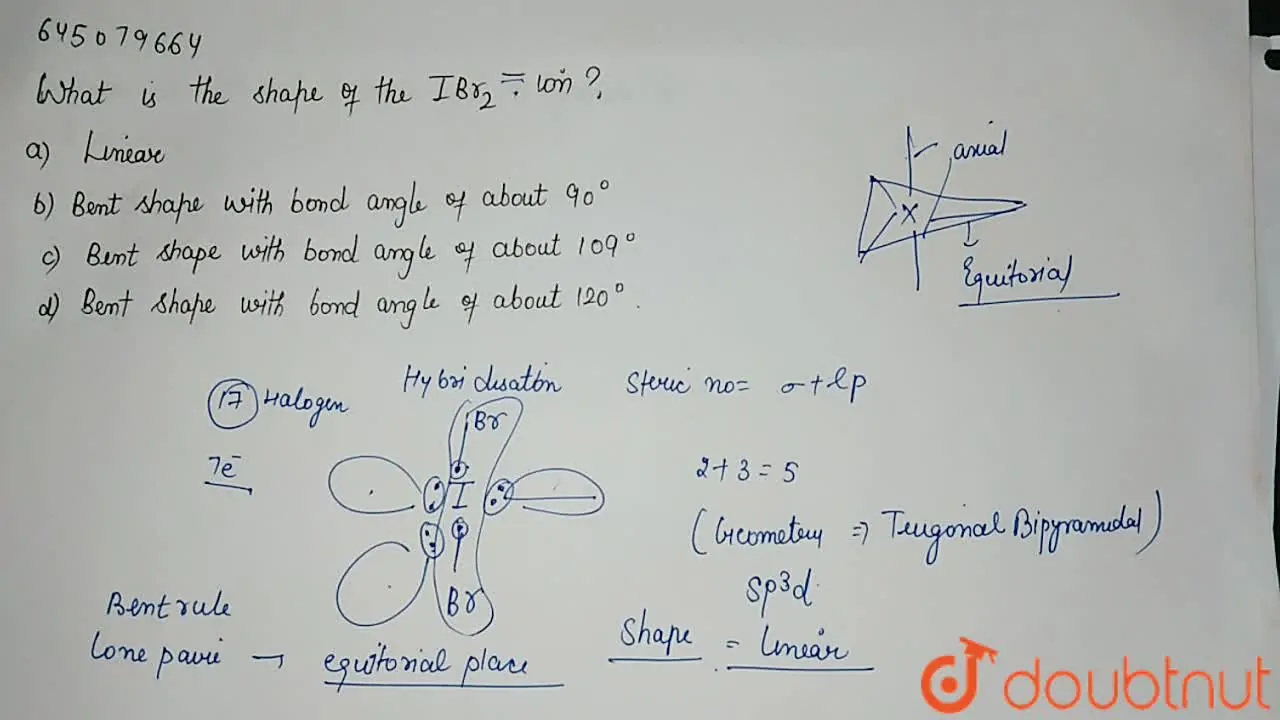 645079664
What is the shape of the IBr2⁻ ion?
a) Linear
b) Bent shape with bond angle of about 90°
c) Bent shape with bond angle of about 109°
d) Bent shape with bond angle of about 120°.
axial
X
Equitorial
17 Halogen
7e⁻
Hybridisation
Steric no= σ+lp
Br
I
Br
2+3=5
(Geometry ⇒ Trigonal Bipyramidal)
sp³d
Bent rule
lone pair → equitorial place
Shape = linear
doubtnut